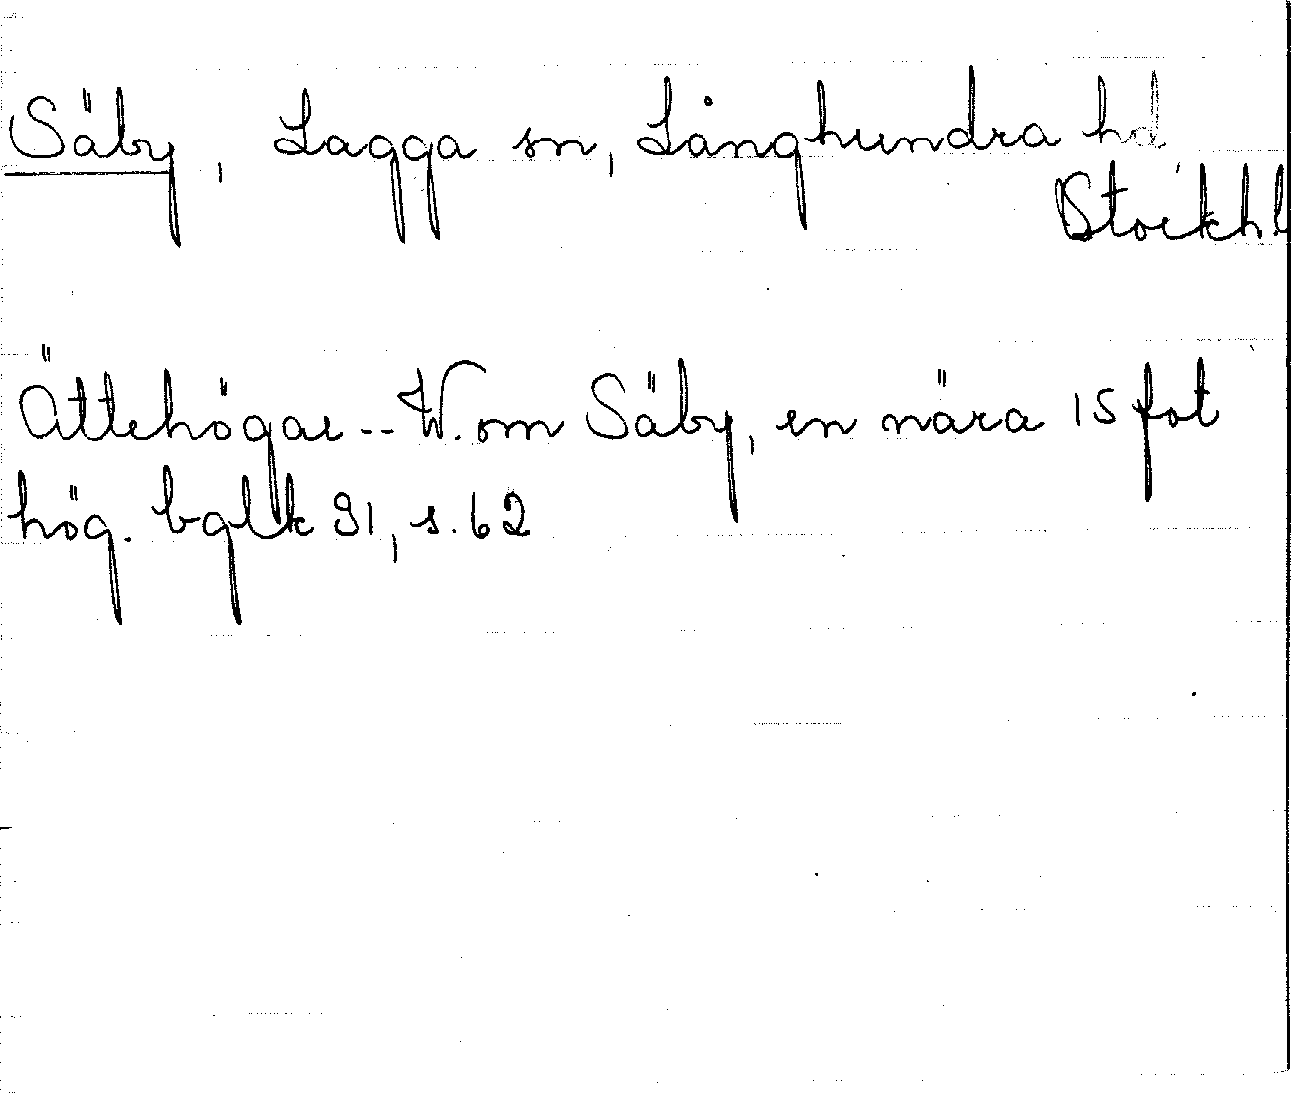 Säby, Lagga sn, Långhundra hd
Stockh.l
Ättehögar -- W. om Säby, en nära 15 fot
hög. bglk 91, s. 62